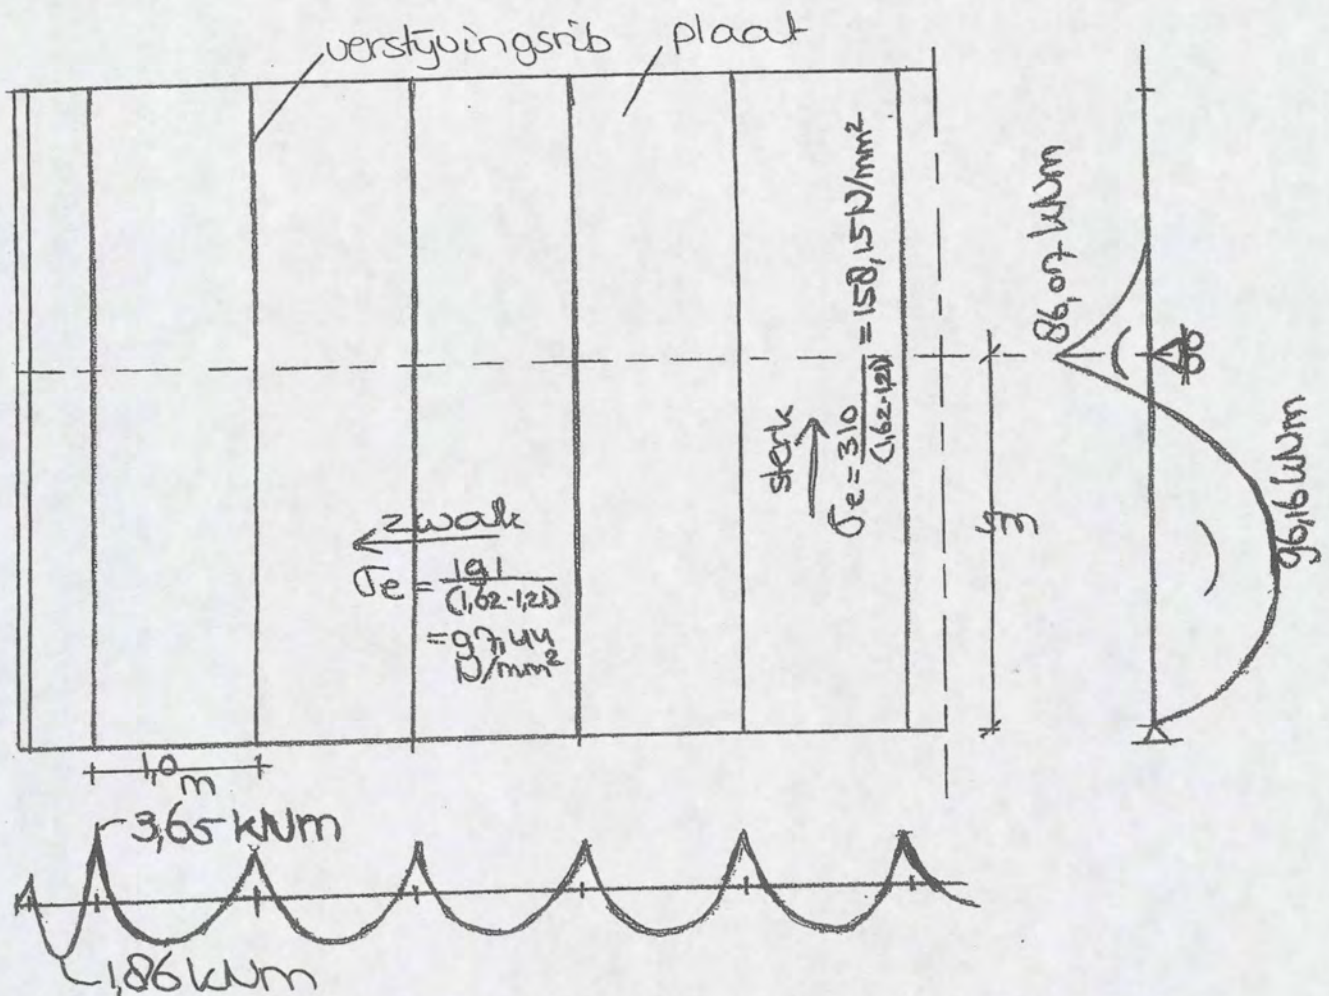 verstyvingsrib
plaat
zwak
σe = 191
(1,62·1,21)
= 97,44
N/mm²
sterk
σe = 310
(1,62·1,21)
= 158,15 N/mm²
86,07 kNm
96,16 kNm
1,0 m
3,65 kNm
1,86 kNm